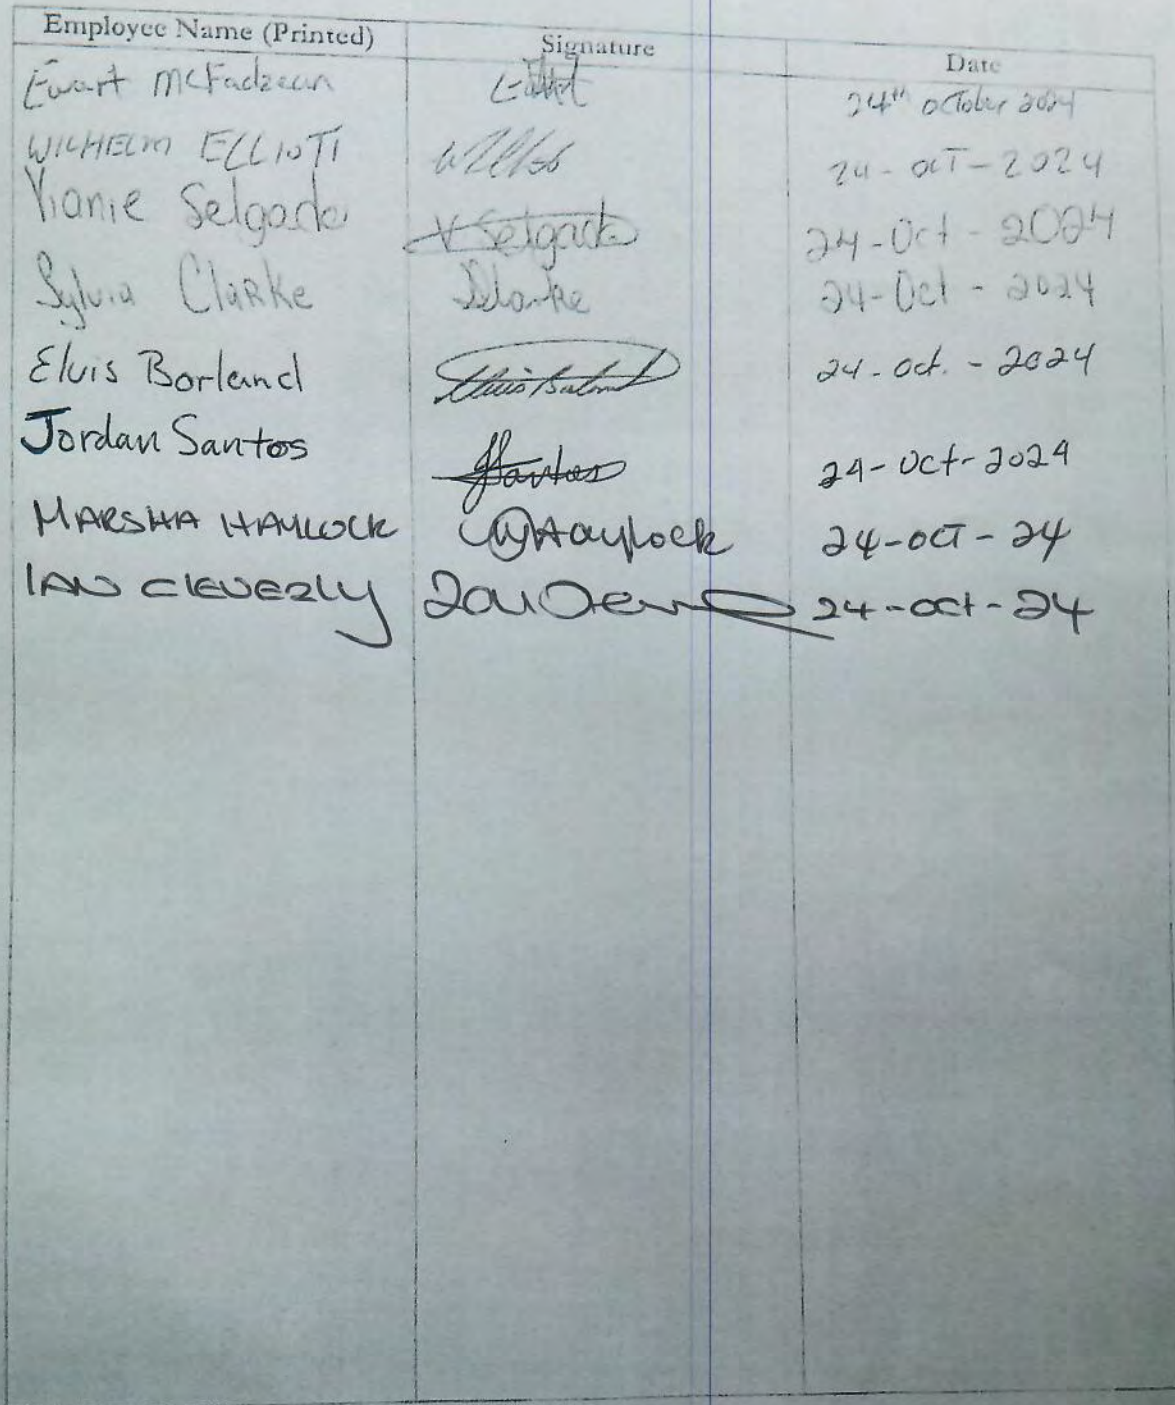 Employee Name (Printed) Signature Date
Ewart McFadzean 24th October 2024
WILHELM ELLIOTT 24-OCT-2024
Vianie Selgado V Selgado 24-Oct-2024
Sylvia Clarke SClarke 24-Oct-2024
Elvis Borland Elvis Borland 24-Oct.-2024
Jordan Santos JSantos 24-Oct-2024
MARSHA HAYLOCK MHaylock 24-OCT-24
IAN CLEVERLY 24-oct-24